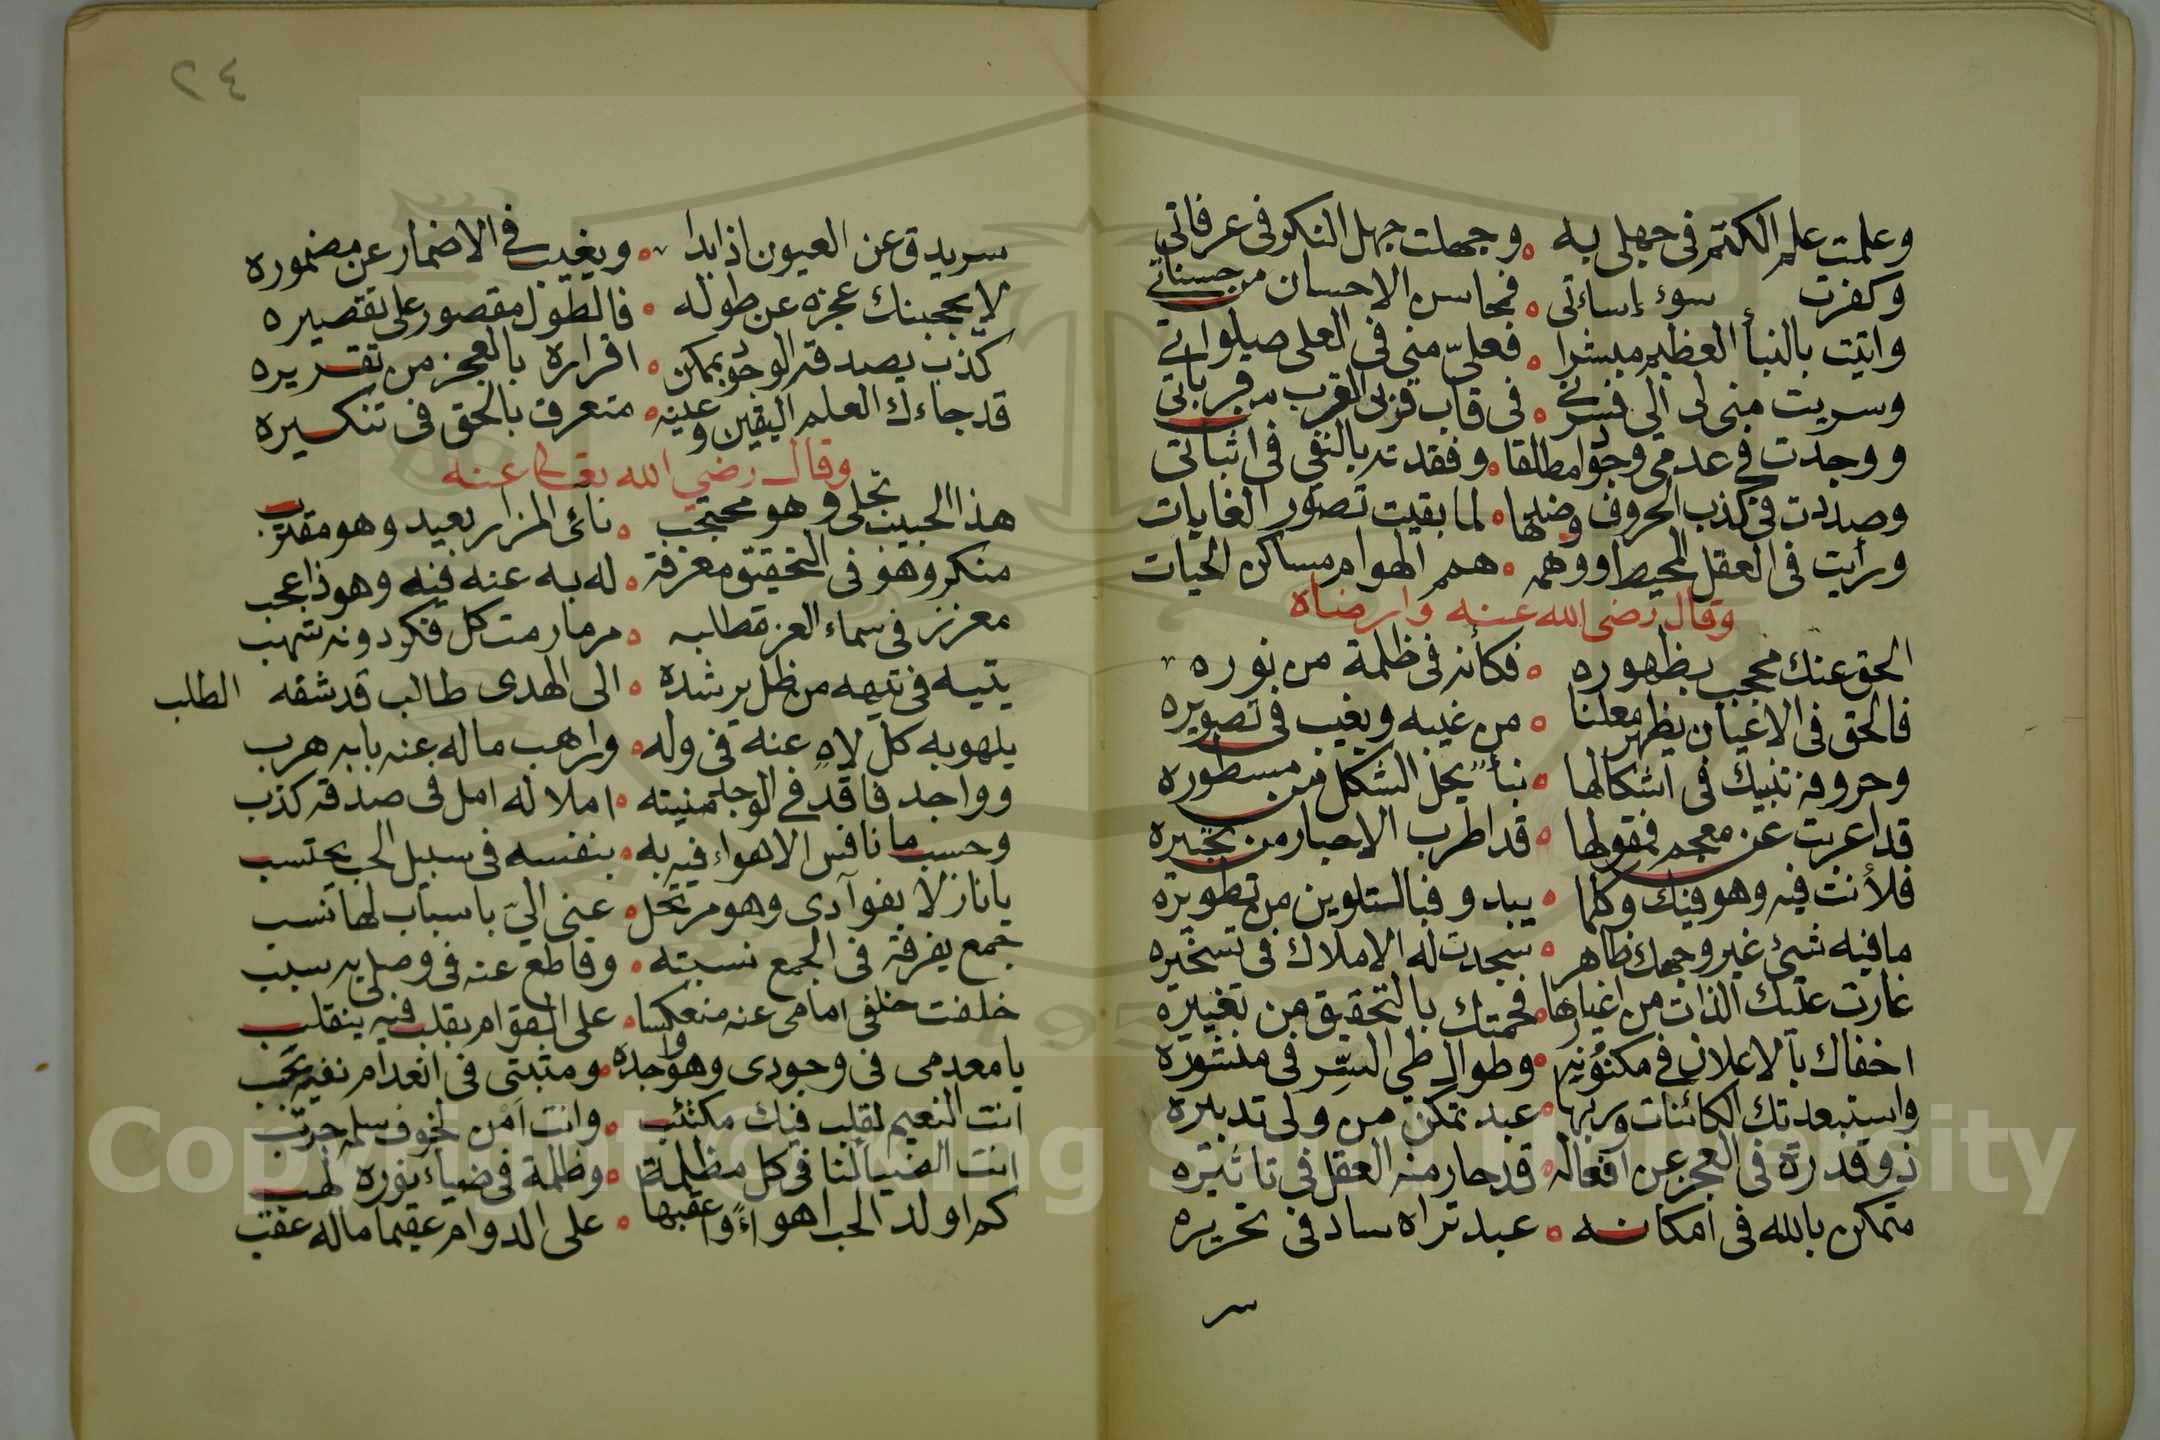 وعلمت علم الكتم في جهلي به ه وجهلت جهل النكر في عرفاتي
وكفرت سوء إساءتي ه فمحاسن الاحسان من حسناتي
واتيت بالنبأ العظيم مبشرا ه فعليّ مني في العلى صيلواتي
وسريت مني لي الي فسرني ه في قاب قربى القرب من قرباتي
ووجدت في عدمي وجودا مطلقا ه وفقدته بالنفي في اثباتي
وصددت في كذب الحروف وضلها ه لما بقيت تصور الغايات
ورأيت في العقل المحيط ووهمه ه همم الهوام مساكن الحيات
وقال رضى الله عنه وارضاه
الحق عنك محجب بظهوره ه فكأنه في ظلمة من نوره
فالحق في الاعيان يظهر معلنا ه من غيبه ويغيب في تصويره
وحروفه تنبيك في اشكالها ه نبأ يحل الشكل من مسطوره
قد اعربت عن معجم فمقولها ه قد اطرب الاحبار من تحبيره
فلأنت فيه وهو فيك وكلما ه يبدو فبالتلوين من تطويره
ما فيه شيء غير وجهك ظاهر ه سجدت له الاملاك في تسخيره
غارت عليك الذات من اغيارها ه فحمتك بالتحقيق من تغييره
اخفاك بالاعلان في مكنونه ه وطوال طي السِّر في منشوره
واستبعدتك الكائنات وربها ه عبد تمكن من ولي تدبيره
ذو قدرة في العجز عن افعاله ه قد حار منه العقل في تاثيره
متمكن بالله في امكانه ه عبد تراه ساد في تحريره
سر
٢٤
سر يدق عن العيون اذا بدا ه ويغيب في الاضمار عن مضموره
لا يحجبنك عجزه عن طوله ه فالطول مقصور على تقصيره
كذب يصدقه الوجود بمكن ه اقراره بالعجز من تقديره
قد جاءك العلم اليقين وعينه ه متعرف بالحق في تنكيره
وقال رضي الله تعالى عنه
هذا الحبيب تجلى وهو محتجب ه نائى المزار بعيد وهو مقترب
منكر وهو في التحقيق معرفة ه له به عنه فيه وهو ذا عجب
معزز في سماء العز مطلبه ه مرما رمت كل فكر دونه شهب
يتيه في تيهه من ظل يرشده ه الى الهدى طالب قد شقه الطلب
يلهو به كل لاهٍ عنه في وله ه وراهب ماله عنه بابه هرب
وواجد فاقد في الوجد منيته ه املا له امل في صدقه كذب
وحسب ما نافس الاهواء فيه به ه بنفسه في سبيل الحب يحتسب
يا نازلا بفوآدى وهو مرتحل ه عنى اليّ باسباب لها نسب
جمع يفرقه في الجمع نسبته ه وقاطع عنه في وصلي به سبب
خلفت خلفي امامي عنه منعكسا ه على الهوام بقلب فيه ينقلب
يا معدمي في وجودي وهو واجده ه ومثبتي في انعدام نفيه يجب
انت النعيم لقلب فيك مكتئب ه وانت امن لخوف سلمه حرب
انت الضيا لنا في كل مظلمة ه وظلمة في ضياء نوره لهب
كم اولد الحب اهواءً واعقبها ه على الدوام عقيما ماله عقب